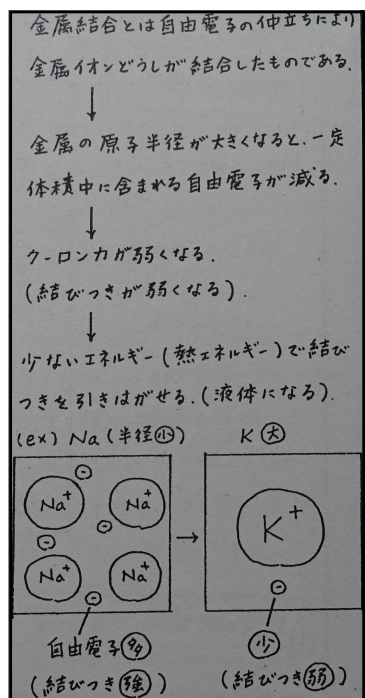 金属結合とは自由電子の仲立ちにより
金属イオンどうしが結合したものである.
↓
金属の原子半径が大きくなると、一定
体積中に含まれる自由電子が減る.
↓
クーロン力が弱くなる.
(結びつきが弱くなる).
↓
少ないエネルギー(熱エネルギー)で結び
つきを引きはがせる.(液体になる).
(ex) Na (半径小) K 大
Na⁺ Na⁺ → K⁺
Na⁺ Na⁺
自由電子多 少
(結びつき強) (結びつき弱)